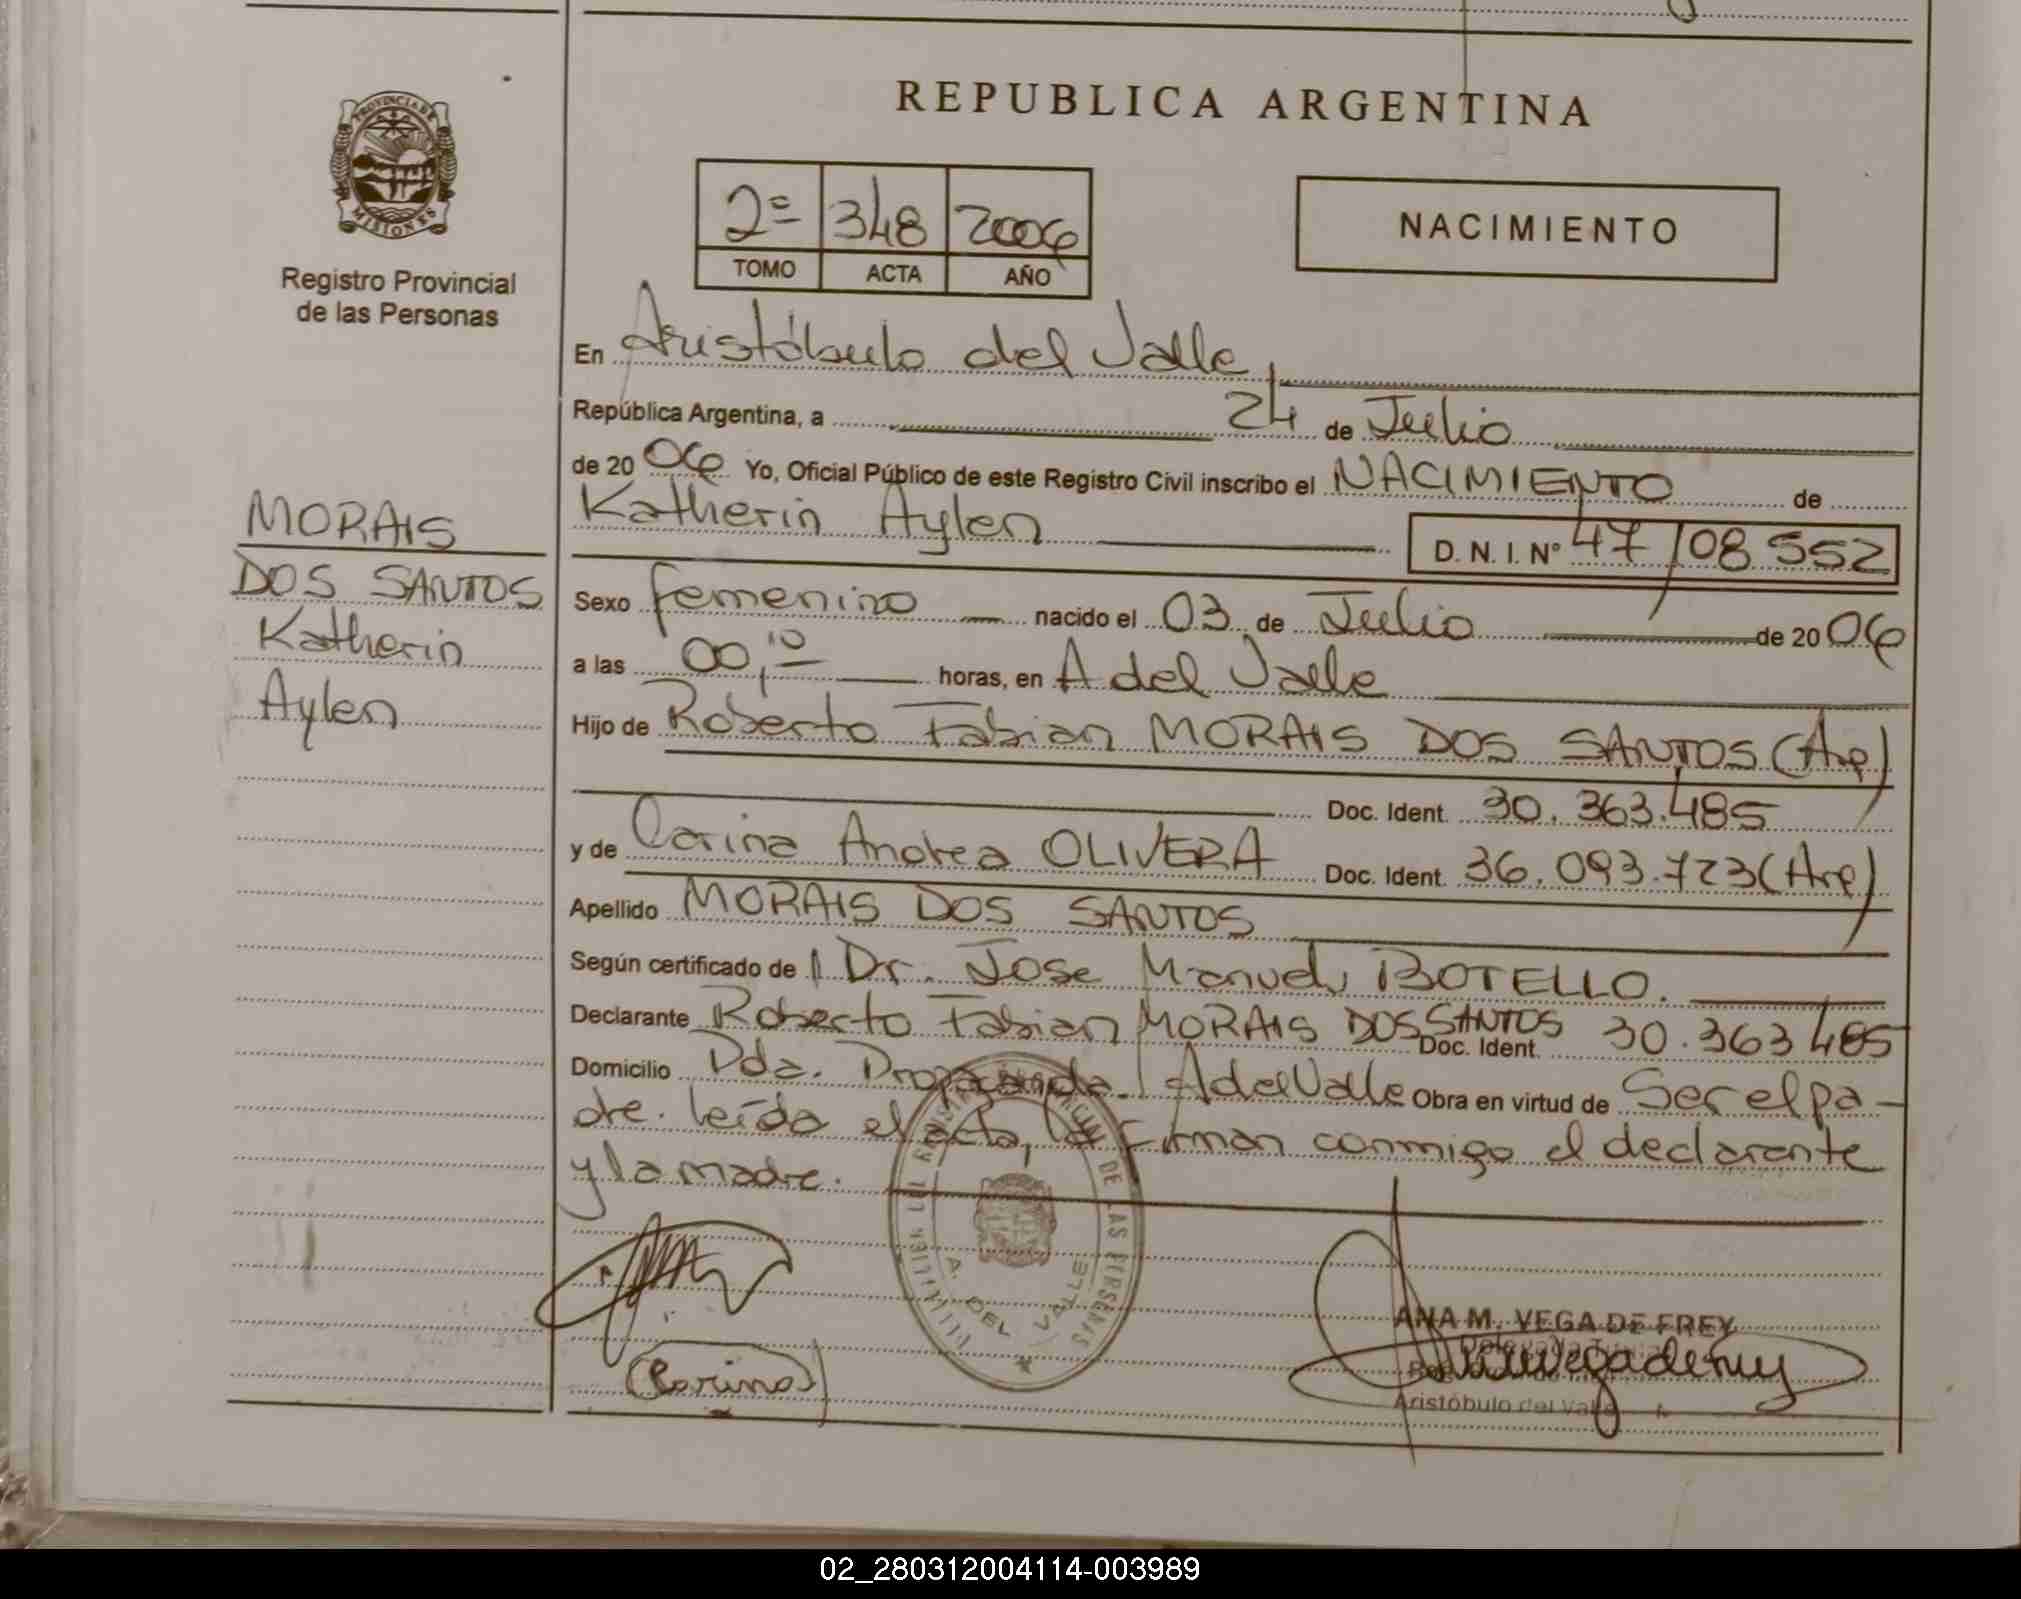 REPUBLICA ARGENTINA
PROVINCIA DE
MISIONES
Registro Provincial
de las Personas
2º 348 2006
TOMO ACTA AÑO
NACIMIENTO
En Aristóbulo del Valle,
República Argentina, a 24 de Julio
de 2006 Yo, Oficial Público de este Registro Civil inscribo el NACIMIENTO de
Katherin Aylen D. N. I. Nº 47/08 552
MORAIS
DOS SANTOS
Katherin
Aylen
Sexo femenino nacido el 03 de Julio de 2006
a las 00,10 horas, en A del Valle
Hijo de Roberto Fabian MORAIS DOS SANTOS (Arg)
Doc. Ident. 30.363.485
y de Carina Andrea OLIVERA Doc. Ident. 36.093.723 (Arg)
Apellido MORAIS DOS SANTOS
Según certificado de Dr. Jose Manuel BOTELLO.
Declarante Roberto Fabian MORAIS DOS SANTOS Doc. Ident. 30.363 485
Domicilio Pda. Propaganda. A del Valle Obra en virtud de Ser el pa-
dre. leída el acta, la firman conmigo el declarante
y la madre.
DE LAS PERSONAS
A. DEL VALLE
ANA M. VEGA DE FREY
Aristóbulo del Valle
(Carina)
02_280312004114-003989